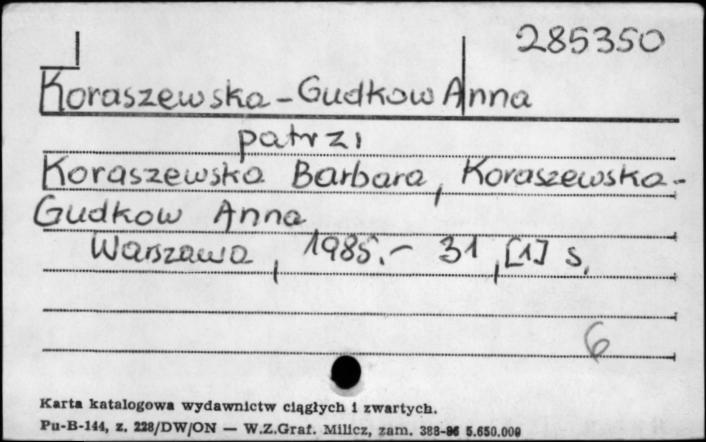 285350
Koraszewska-Gudkow Anna
patrzi
Koraszewska Barbara, Koraszewska-
Gudkow Anna
Warszawa, 1985.- 31, [1] s.
6
Karta katalogowa wydawnictw ciągłych i zwartych.
Pu-B-144, z. 228/DW/ON — W.Z.Graf. Milicz, zam. 388-86 5.650.000